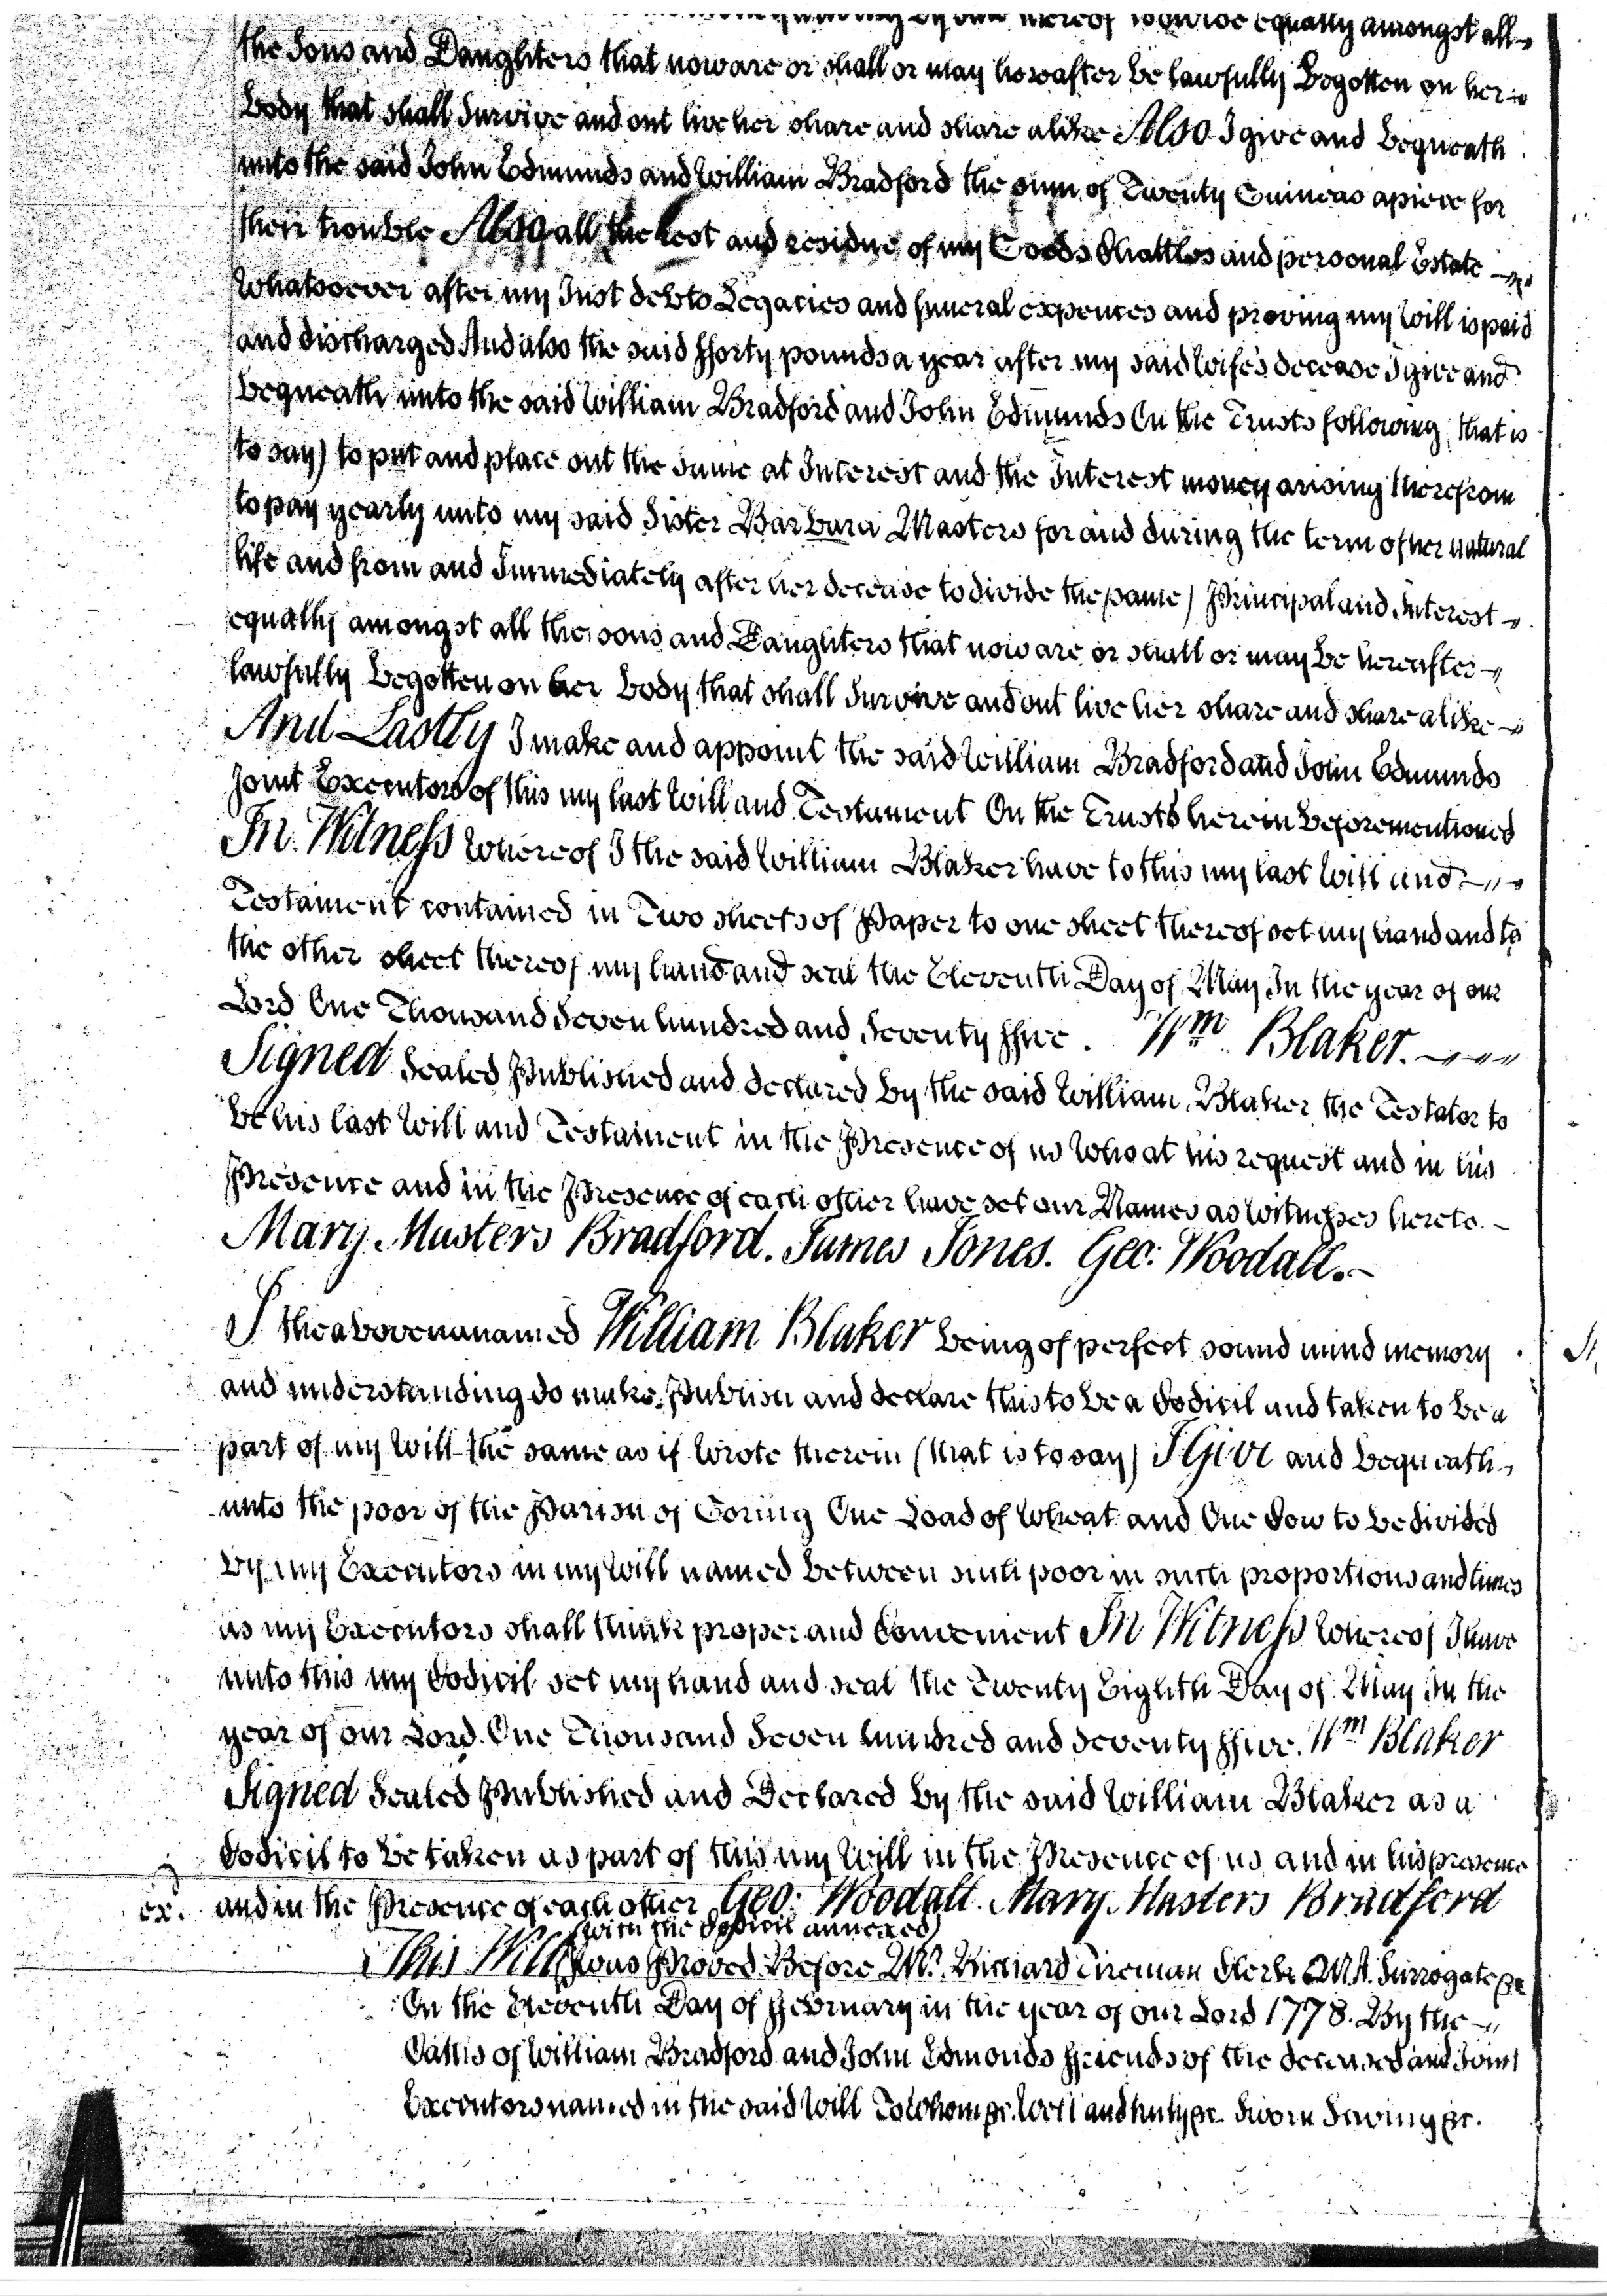 by sale thereof to divide equally amongst all
the Sons and Daughters that now are or shall or may hereafter be lawfully Begotten on her
Body that shall Survive and out live her share and share alike Also I give and Bequeath
unto the said John Edmunds and William Bradford the sum of Twenty Guineas apiece for
their trouble Also all the rest and residue of my Goods Chattles and personal Estate
Whatsoever after my Just debts Legacies and funeral expences and proving my Will is paid
and discharged And also the said fforty pounds a year after my said Wife's decease I give and
bequeath unto the said William Bradford and John Edmunds On the Trusts following that is
to say) to put and place out the same at Interest and the Interest money arising therefrom
to pay yearly unto my said Sister Barbara Masters for and during the term of her natural
life and from and Immediately after her decease to divide the same) Principal and Interest
equally amongst all the sons and Daughters that now are or shall or may be hereafter
lawfully Begotten on her Body that shall Survive and out live her share and share alike
And Lastly I make and appoint the said William Bradford and John Edmunds
Joint Executors of this my last Will and Testament On the Trusts herein beforementioned
In Witness Whereof I the said William Blaker have to this my last Will and
Testament contained in Two sheets of Paper to one sheet thereof set my hand and to
the other sheet thereof my hand and seal the Eleventh Day of May In the year of our
Lord One Thousand Seven hundred and Seventy ffive. Wm. Blaker.
Signed Sealed Published and declared by the said William Blaker the Testator to
be his last Will and Testament in the Presence of us Who at his request and in his
Presence and in the Presence of each other have set our Names as Witnesses hereto
Mary Masters Bradford. James Jones. Geo: Woodall.
I the abovenanamed William Blaker being of perfect sound mind memory
and understanding do make Publish and declare this to be a Codicil and taken to be a
part of my Will the same as if Wrote therein (that is to say) I Give and bequeath
unto the poor of the Parish of Goring One Load of Wheat and One Cow to be divided
by my Executors in my Will named between such poor in such proportions and times
as my Executors shall think proper and Convenient In Witness Whereof I have
unto this my Codicil set my hand and seal the Twenty Eighth Day of May In the
year of our Lord One Thousand Seven hundred and Seventy ffive. Wm Blaker
Signed Sealed Published and Declared by the said William Blaker as a
Codicil to be taken as part of this my Will in the Presence of us and in his presence
ex. and in the Presence of each other Geo: Woodall. Mary Masters Bradford
(with the Codicil annexed)
This Will was Proved Before Mr. Richard Tireman Clerk M.A. Surrogate &c
On the Eleventh Day of ffebruary in the year of our Lord 1778. By the
Oaths of William Bradford and John Edmonds ffriends of the deceased and Joint
Executors named in the said Will To Whom &c. Well and truly &c Sworn Saving &c.